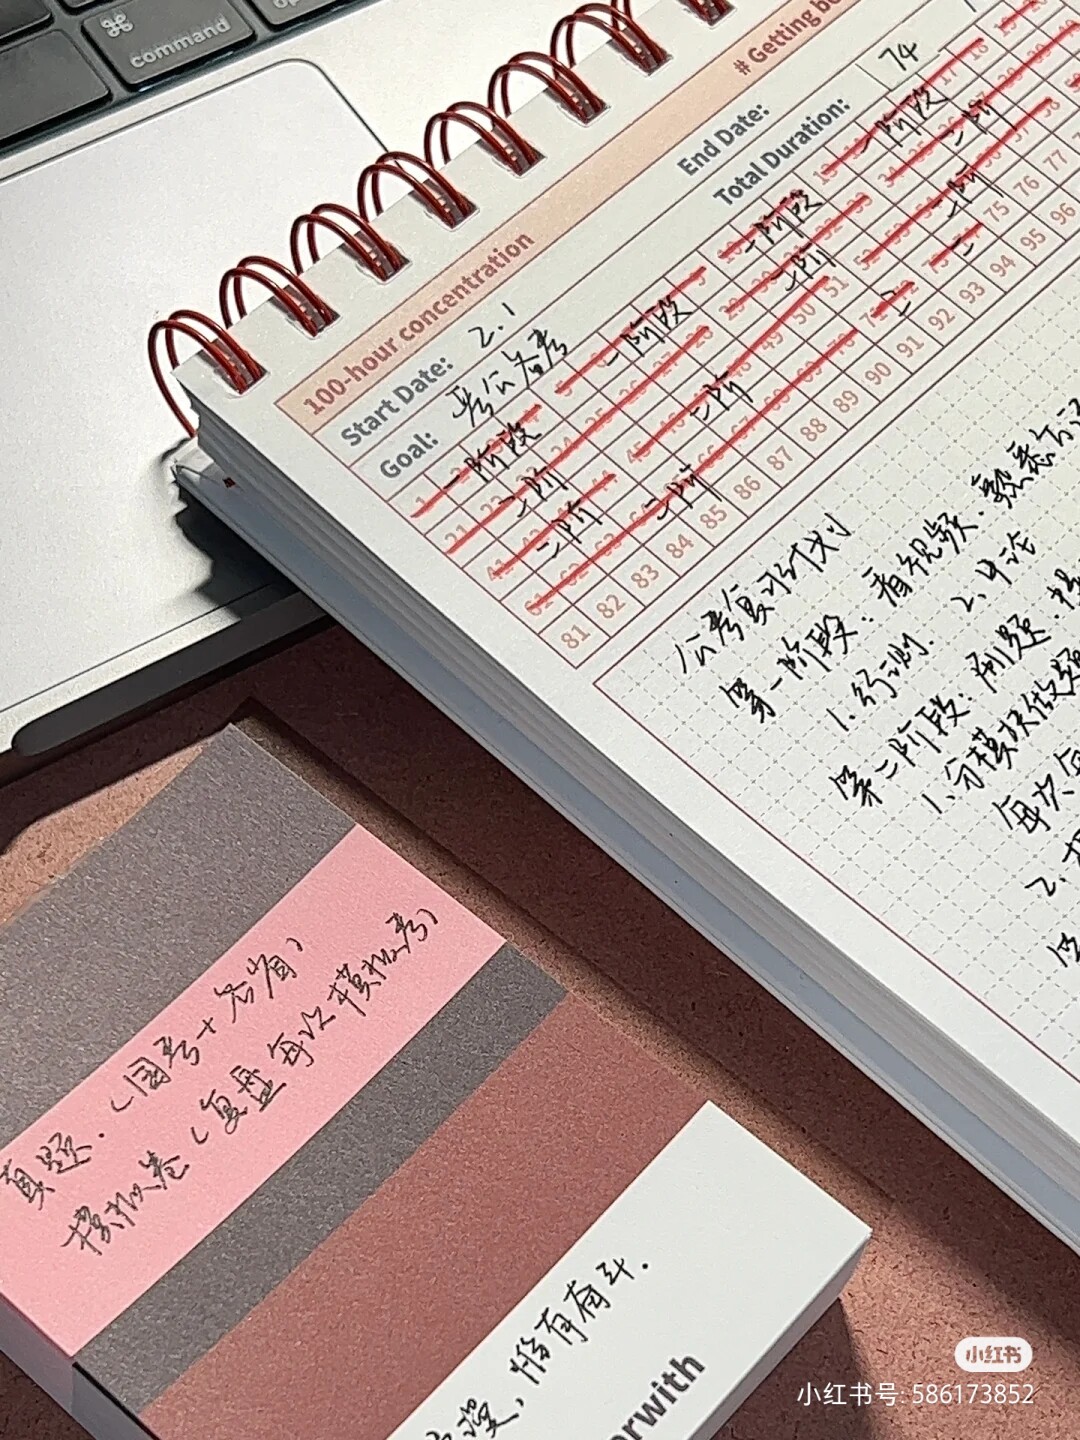 command
# Getting be
100-hour concentration
Start Date: 2.1
End Date:
Goal: 考公备考
Total Duration: 74
一阶段 一阶段 一阶段 一阶段
二阶 二阶 二阶
二阶 二阶 二阶
二阶 二
75 76 77
81 82 83 84 85 86 87 88 89 90 91 92 93 94 95 96
公考复习计划
第一阶段：看视频．熟悉
1.行测． 2.申论
第二阶段：刷题．
1.分模块做题
每次
2.
真题．（国考＋各省）
模拟卷（复盘每次模拟考）
漫，惟有奋斗．
rwith
小红书
小红书号: 586173852